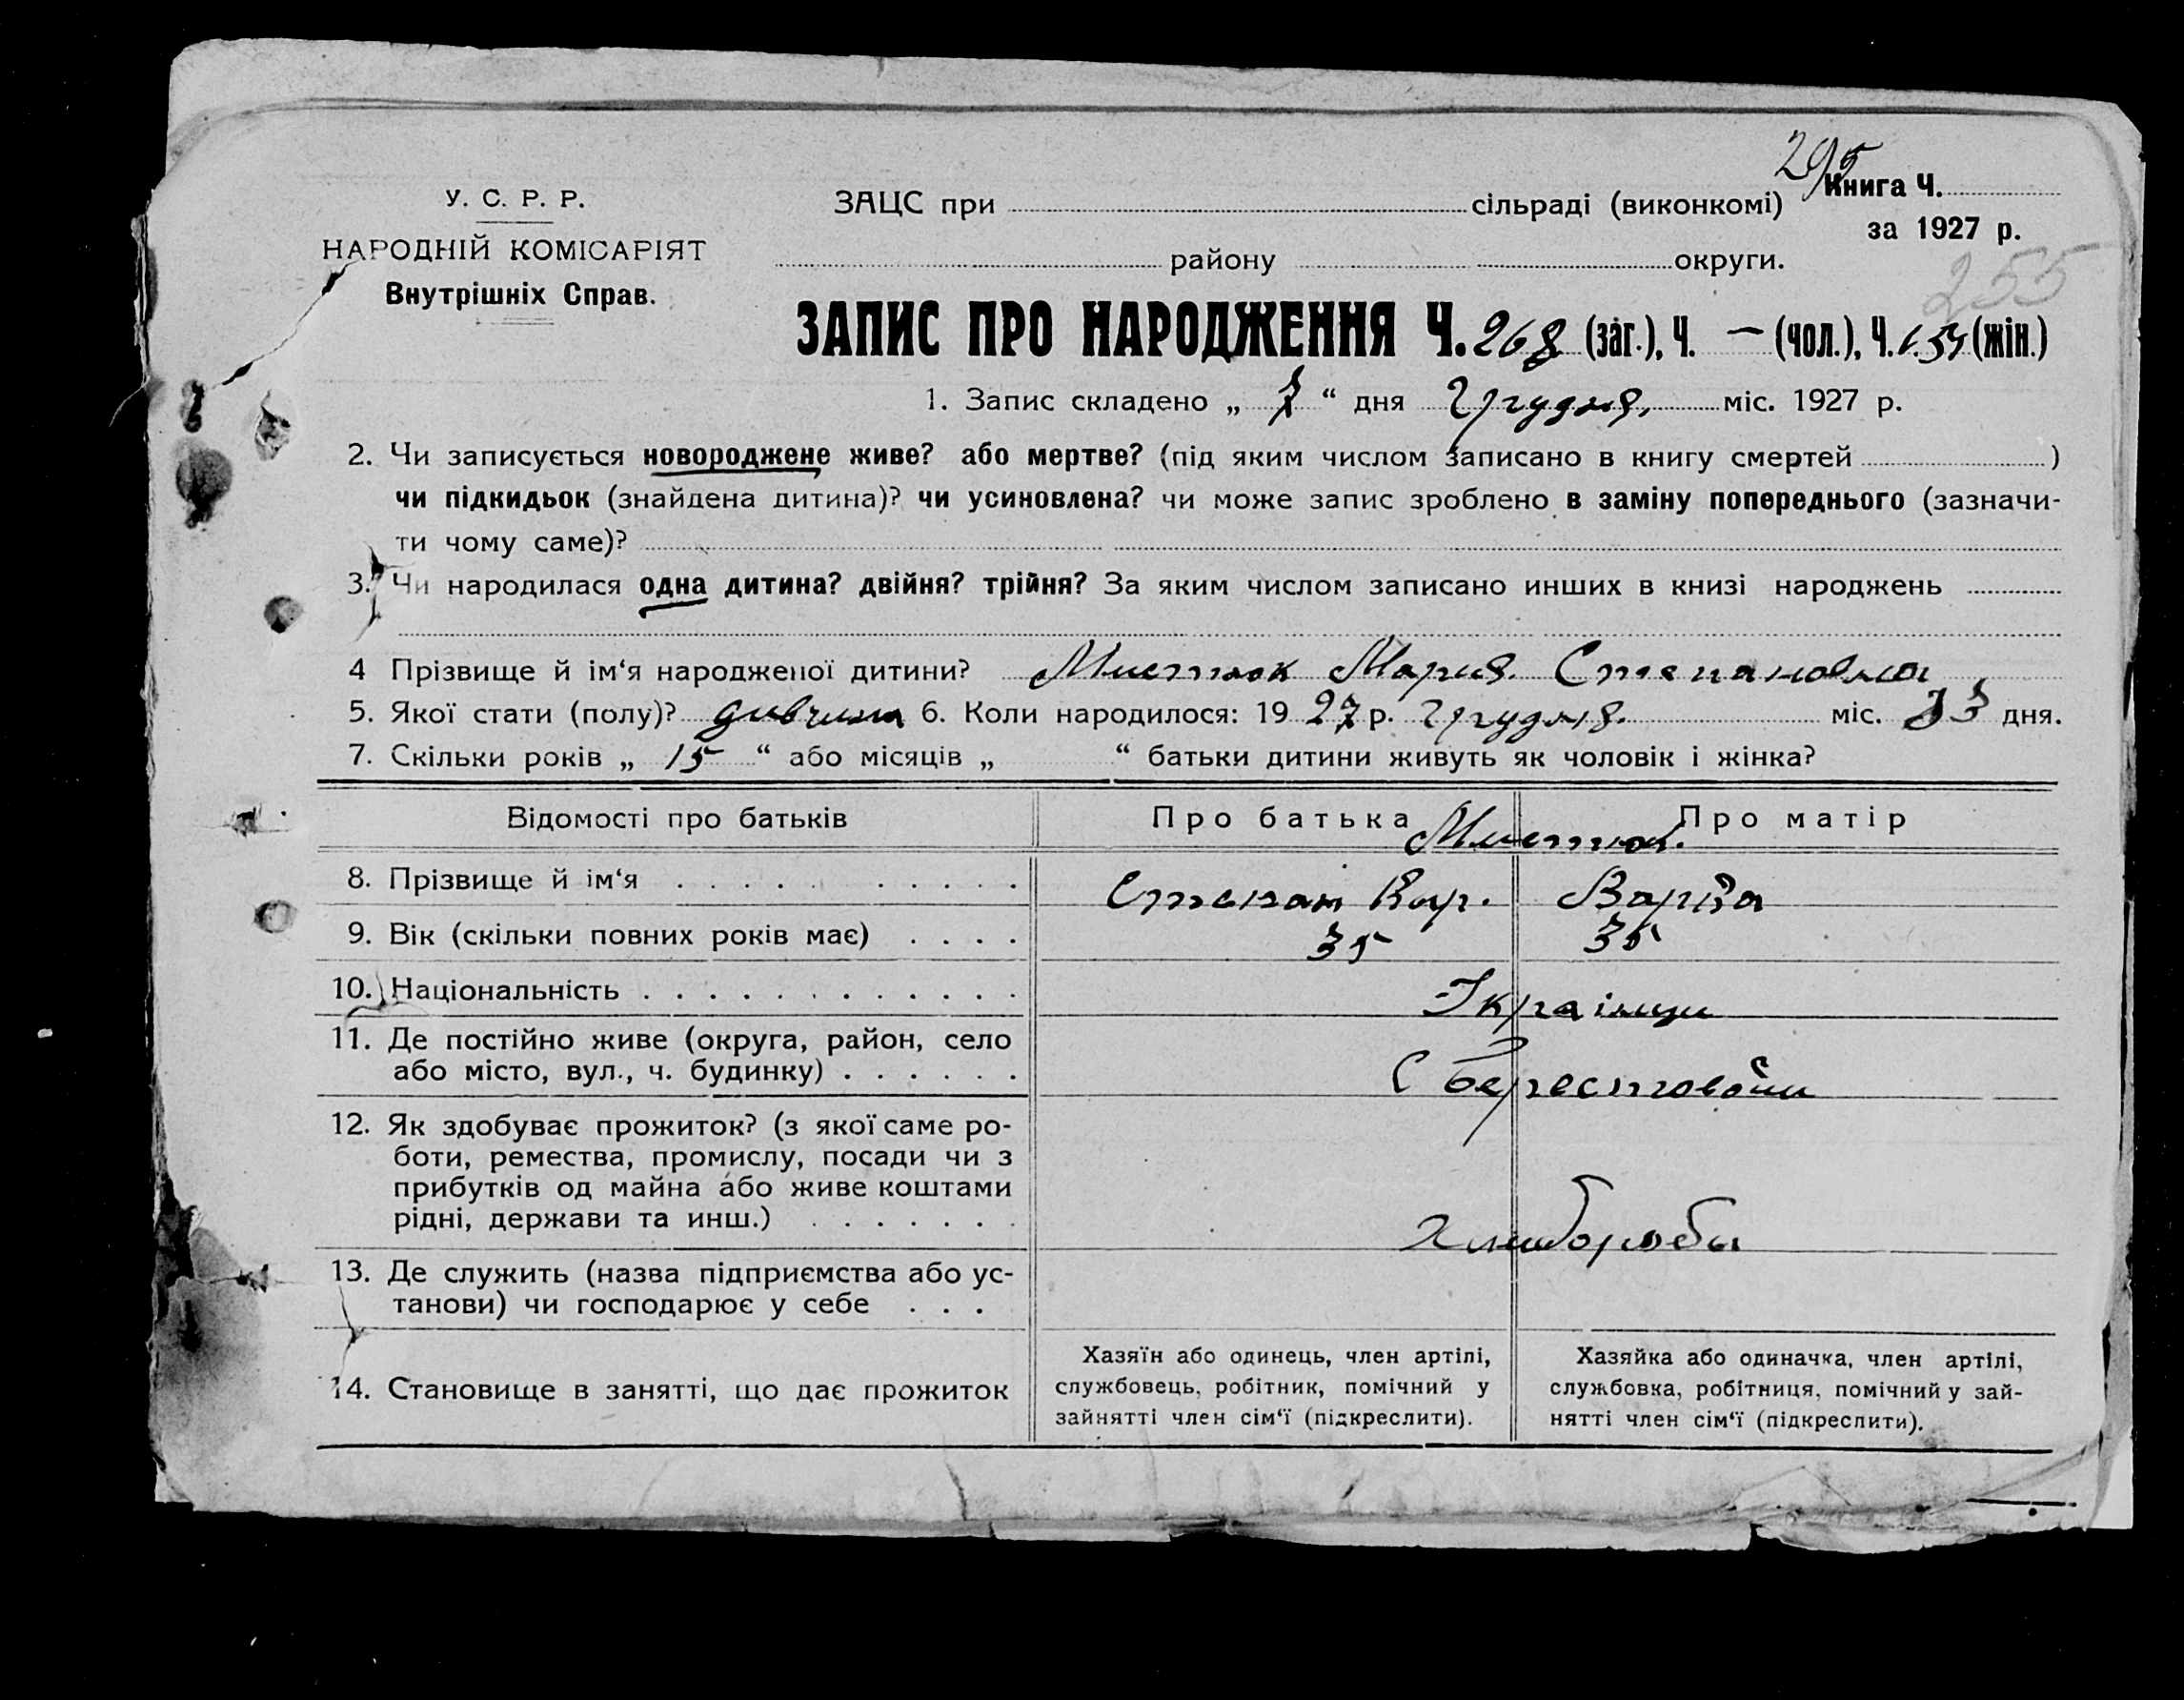 295
У. С. Р. Р.
ЗАЦС при сільраді (виконкомі) Книга Ч.
за 1927 р.
НАРОДНІЙ КОМІСАРІЯТ
району округи.
255
Внутрішніх Справ.
ЗАПИС ПРО НАРОДЖЕННЯ Ч. 268 (заг.), Ч. — (чол.), Ч. (жін.)
1. Запис складено „ 7 “ дня Грудня, міс. 1927 р.
2. Чи записується новороджене живе? або мертве? (під яким числом записано в книгу смертей )
чи підкидьок (знайдена дитина)? чи усиновлена? чи може запис зроблено в заміну попереднього (зазначи-
ти чому саме)?
3. Чи народилася одна дитина? двійня? трійня? За яким числом записано инших в книзі народжень
4 Прізвище й ім‘я народженої дитини? Мистюк Мария Степановна
5. Якої стати (полу)? дивчина 6. Коли народилося: 19 27 р. Грудня. міс. дня.
7. Скільки років „ 15 “ або місяців „ “ батьки дитини живуть як чоловік і жінка?
Відомості про батьків Про батька Про матір
Мистюк.
8. Прізвище й ім‘я Степан Вар.
9. Вік (скільки повних років має) 35 35
10. Національність Украінци
11. Де постійно живе (округа, район, село
або місто, вул., ч. будинку) С
12. Як здобуває прожиток? (з якої саме ро-
боти, ремества, промислу, посади чи з
прибутків од майна або живе коштами
рідні, держави та инш.) Хлибороби
13. Де служить (назва підприємства або ус-
танови) чи господарює у себе
14. Становище в занятті, що дає прожиток
Хазяїн або одинець, член артілі,
службовець, робітник, помічний у
зайнятті член сім‘ї (підкреслити).
Хазяйка або одиначка, член артілі,
службовка, робітниця, помічний у зай-
нятті член сім‘ї (підкреслити).